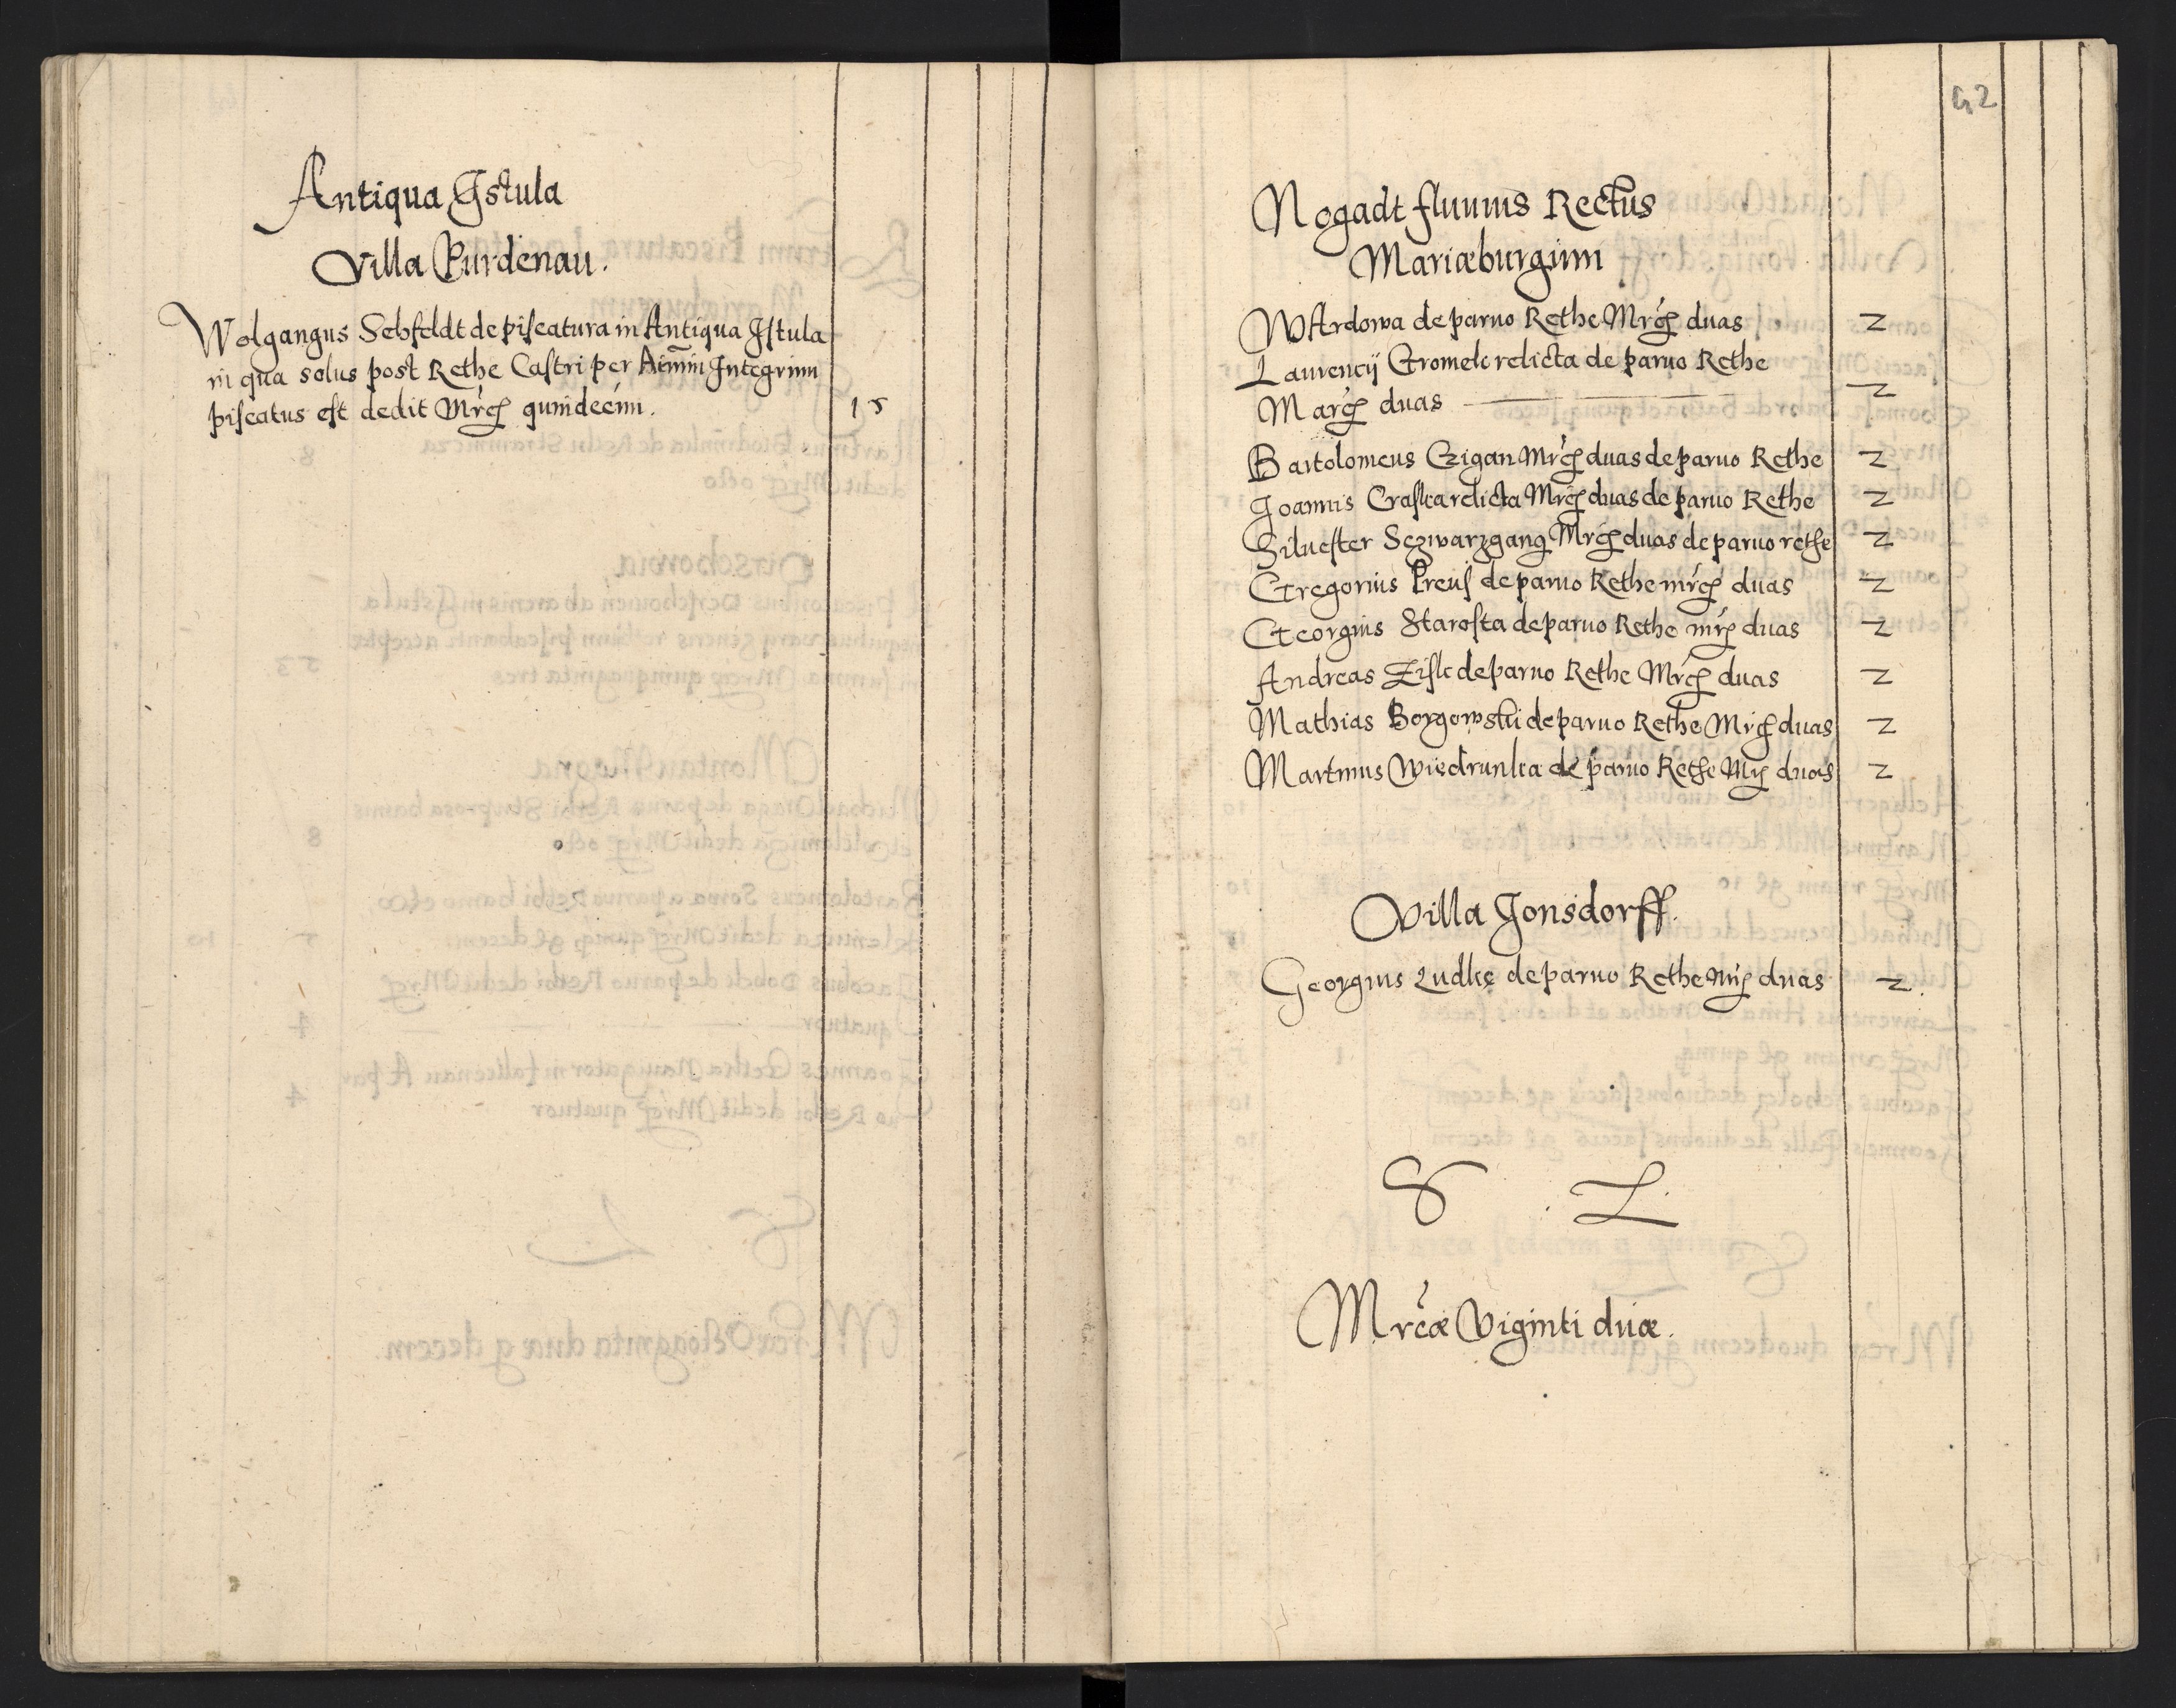 Antiqua Istula
Villa Purdenau.
Wolgangus Sebfeldt de piscatura in Antiqua Istula
in qua solus post Rethe Castri per Annum Integrum
piscatus est dedit Mrcs quindecim. 15
42
Nogadt fluuius Rectus
Mariæburgum
WArdowa de paruo Rethe Mrcs duas 2
Laurencij Gromek relicta de paruo Rethe
Marcs duas 2
Bartolomeus Czigan Mrcs duas de paruo Rethe 2
Joannis Craska relicta Mrcs duas de paruo Rethe 2
Siluester Sczwarzgang Mrcs duas de paruo rethe 2
Gregorius Preus de paruo Rethe mrcs duas 2
Georgius Starosta de paruo Rethe mrs duas 2
Andreas Zisk de paruo Rethe Mrcs duas 2
Mathias Borgowski de paruo Rethe Mrcs duas 2
Martinus Wiedrunka de paruo Rethe Mrs duas 2
Villa Jonsdorff.
Georgius Ludke de paruo Rethe mrs duas 2.
S L
Mrcæ Viginti duæ.